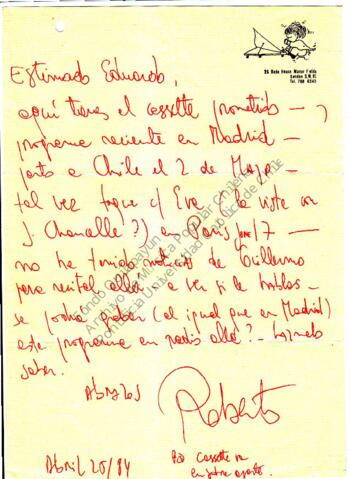 26 Bede House Manor Fields
London S.W.15
Tel. 788 4245
Estimado Eduardo,
aquí tienes el cassette prometido –
programa reciente en Madrid –
parto a Chile el 2 de Mayo –
tal vez toque c/ Eva (la viste con
J. Chancelle?) en París 17 –
no he tenido noticias de Guillermo
para recital allá. a ver si le hablas –
se podría grabar (al igual que en Madrid)
este programa en radio allá? – házmelo
saber.
Abrazos
Roberto
Abril 20/84
PD Cassette va
en sobre aparte.
Fondo Quilapayún
Archivo de Música Popular Chilena
Pontificia Universidad Católica de Chile